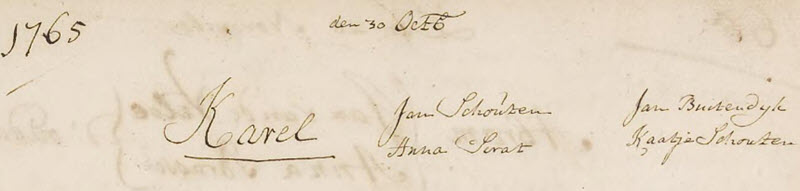 1765
den 30 Octb
Karel
Jan Schouten
Anna Serat
Jan Buitendyk
Kaatje Schouten